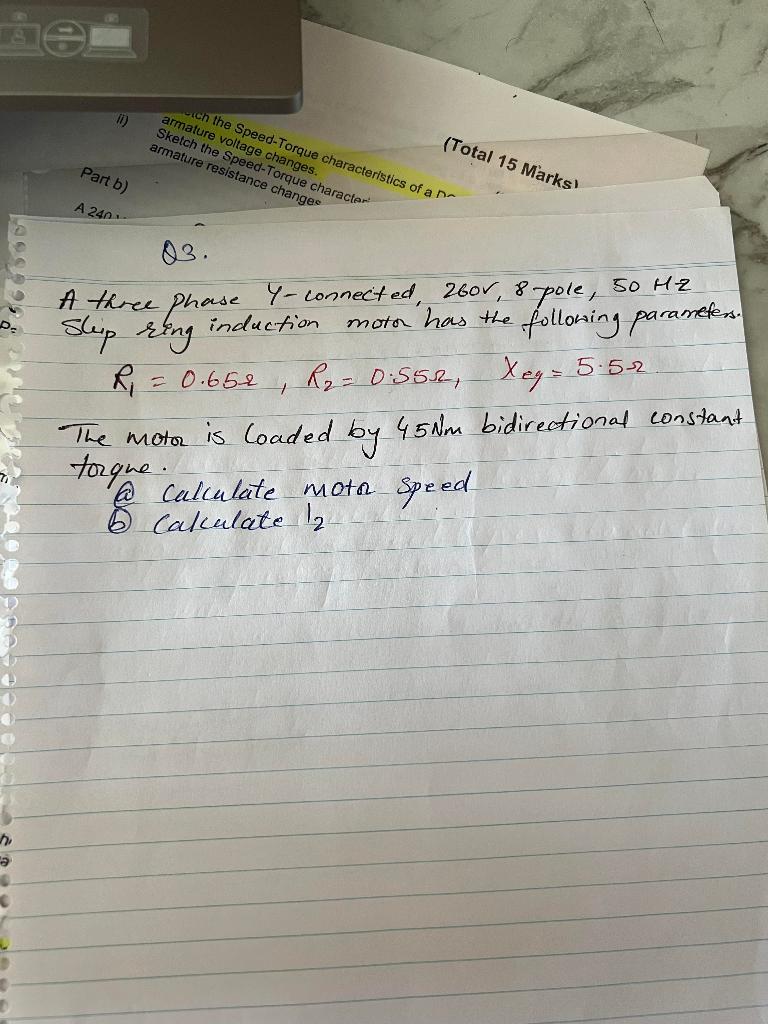 ii)
tch the Speed-Torque characteristics of a
armature voltage changes.
Sketch the Speed-Torque
armature resistance changes
(Total 15 Marks)
Part b)
A 240
Q3.
A three phase Y-connected, 260V, 8-pole, 50 HZ
Slip ring induction motor has the following parameters.
R1 = 0.65Ω , R2 = 0.55Ω, Xeq = 5.5Ω
The motor is loaded by 45Nm bidirectional constant
torque.
ⓐ Calculate motor speed
ⓑ Calculate I2